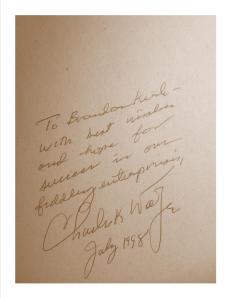 To Brandon Kirk—
with best wishes
and hope for
success in our
fiddling enterprises,
July 1998